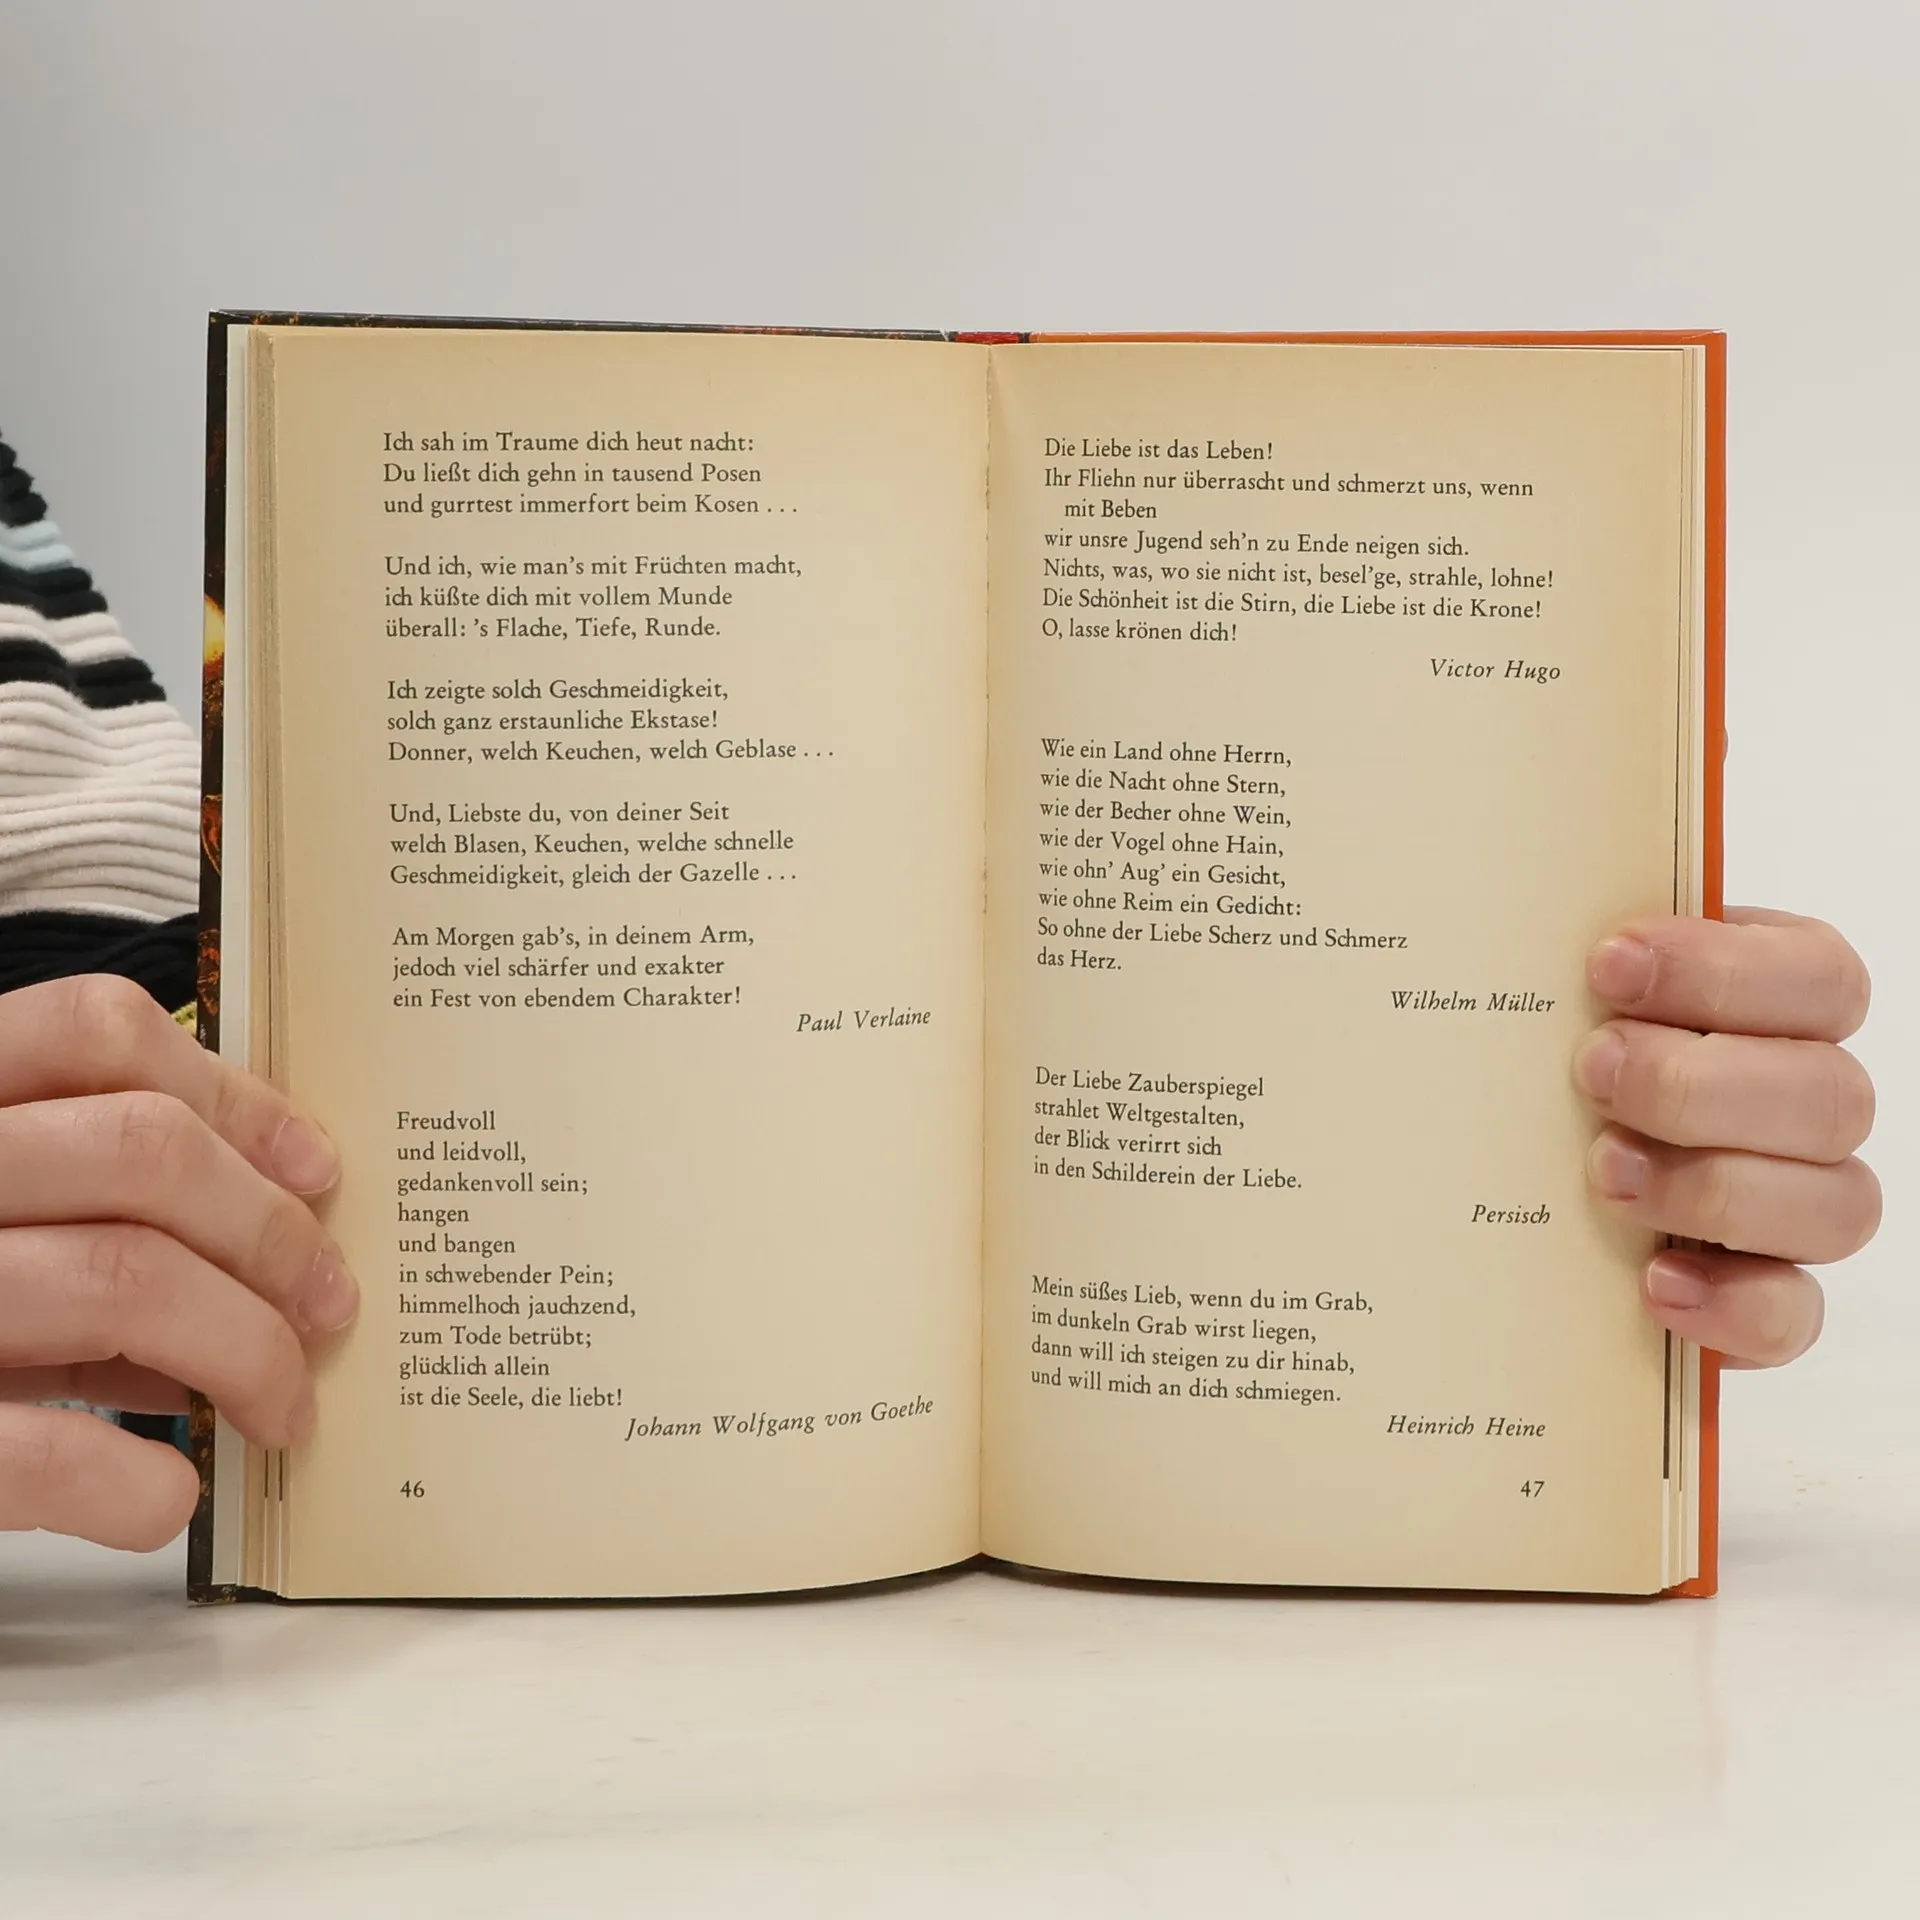 Ich sah im Traume dich heut nacht:
Du ließt dich gehn in tausend Posen
und gurrtest immerfort beim Kosen . . .
Und ich, wie man's mit Früchten macht,
ich küßte dich mit vollem Munde
überall: 's Flache, Tiefe, Runde.
Ich zeigte solch Geschmeidigkeit,
solch ganz erstaunliche Ekstase!
Donner, welch Keuchen, welch Geblase . . .
Und, Liebste du, von deiner Seit
welch Blasen, Keuchen, welche schnelle
Geschmeidigkeit, gleich der Gazelle . . .
Am Morgen gab's, in deinem Arm,
jedoch viel schärfer und exakter
ein Fest von ebendem Charakter!
Paul Verlaine
Freudvoll
und leidvoll,
gedankenvoll sein;
hangen
und bangen
in schwebender Pein;
himmelhoch jauchzend,
zum Tode betrübt;
glücklich allein
ist die Seele, die liebt!
Johann Wolfgang von Goethe
46
Die Liebe ist das Leben!
Ihr Fliehn nur überrascht und schmerzt uns, wenn
mit Beben
wir unsre Jugend seh'n zu Ende neigen sich.
Nichts, was, wo sie nicht ist, besel'ge, strahle, lohne!
Die Schönheit ist die Stirn, die Liebe ist die Krone!
O, lasse krönen dich!
Victor Hugo
Wie ein Land ohne Herrn,
wie die Nacht ohne Stern,
wie der Becher ohne Wein,
wie der Vogel ohne Hain,
wie ohn' Aug' ein Gesicht,
wie ohne Reim ein Gedicht:
So ohne der Liebe Scherz und Schmerz
das Herz.
Wilhelm Müller
Der Liebe Zauberspiegel
strahlet Weltgestalten,
der Blick verirrt sich
in den Schilderein der Liebe.
Persisch
Mein süßes Lieb, wenn du im Grab,
im dunkeln Grab wirst liegen,
dann will ich steigen zu dir hinab,
und will mich an dich schmiegen.
Heinrich Heine
47